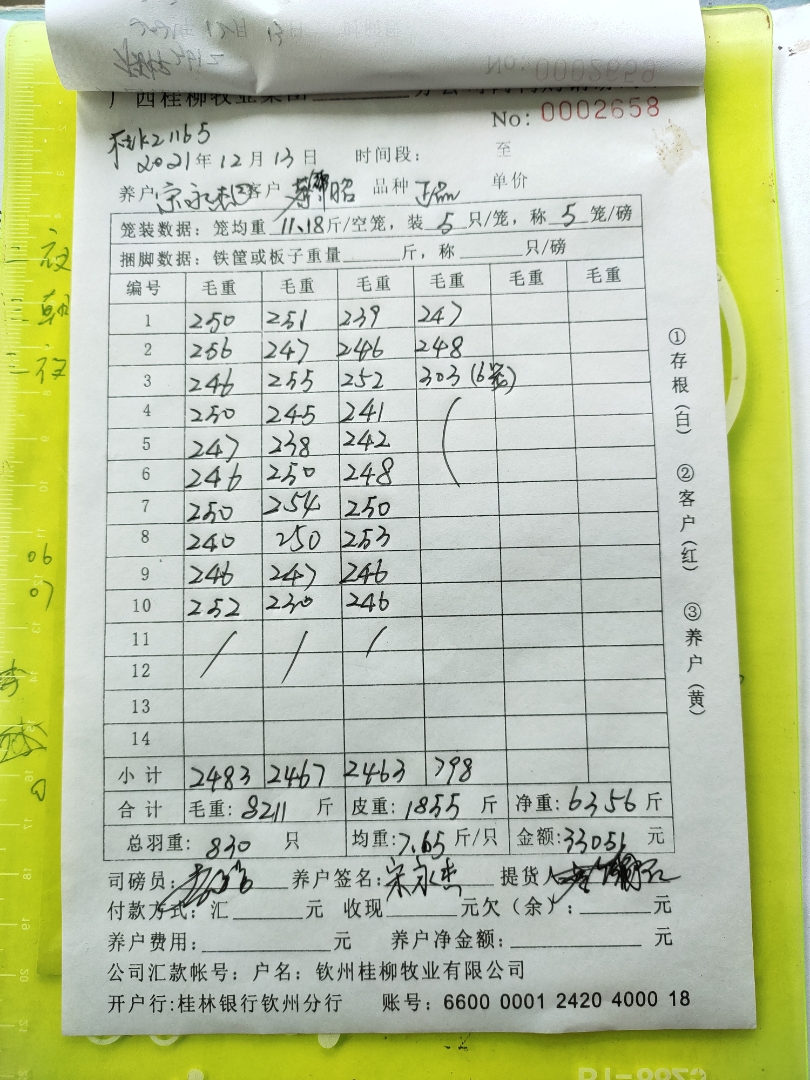 No: 0002658
2021年12月13日 时间段: 至
养户 宋永杰 客户 品种 正品 单价
笼装数据: 笼均重 11.18 斤/空笼, 装 5 只/笼, 称 5 笼/磅
捆脚数据: 铁筐或板子重量 斤, 称 只/磅
编号 毛重 毛重 毛重 毛重 毛重 毛重
1 250 251 239 247
2 256 247 246 248
3 246 255 252 303 (6笼)
4 250 245 241
5 247 238 242
6 246 250 248
7 250 254 250
8 240 250 253
9 246 247 246
10 252 230 246
11
12
13
14
小计 2483 2467 2463 798
合计 毛重: 8211 斤 皮重: 1855 斤 净重: 6356 斤
总羽重: 830 只 均重: 7.65 斤/只 金额: 33051 元
司磅员: 养户签名: 宋永杰 提货人
付款方式: 汇 元 收现 元欠(余): 元
养户费用: 元 养户净金额: 元
公司汇款帐号: 户名: 钦州桂柳牧业有限公司
开户行:桂林银行钦州分行 账号: 6600 0001 2420 4000 18
①存根(白) ②客户(红) ③养户(黄)